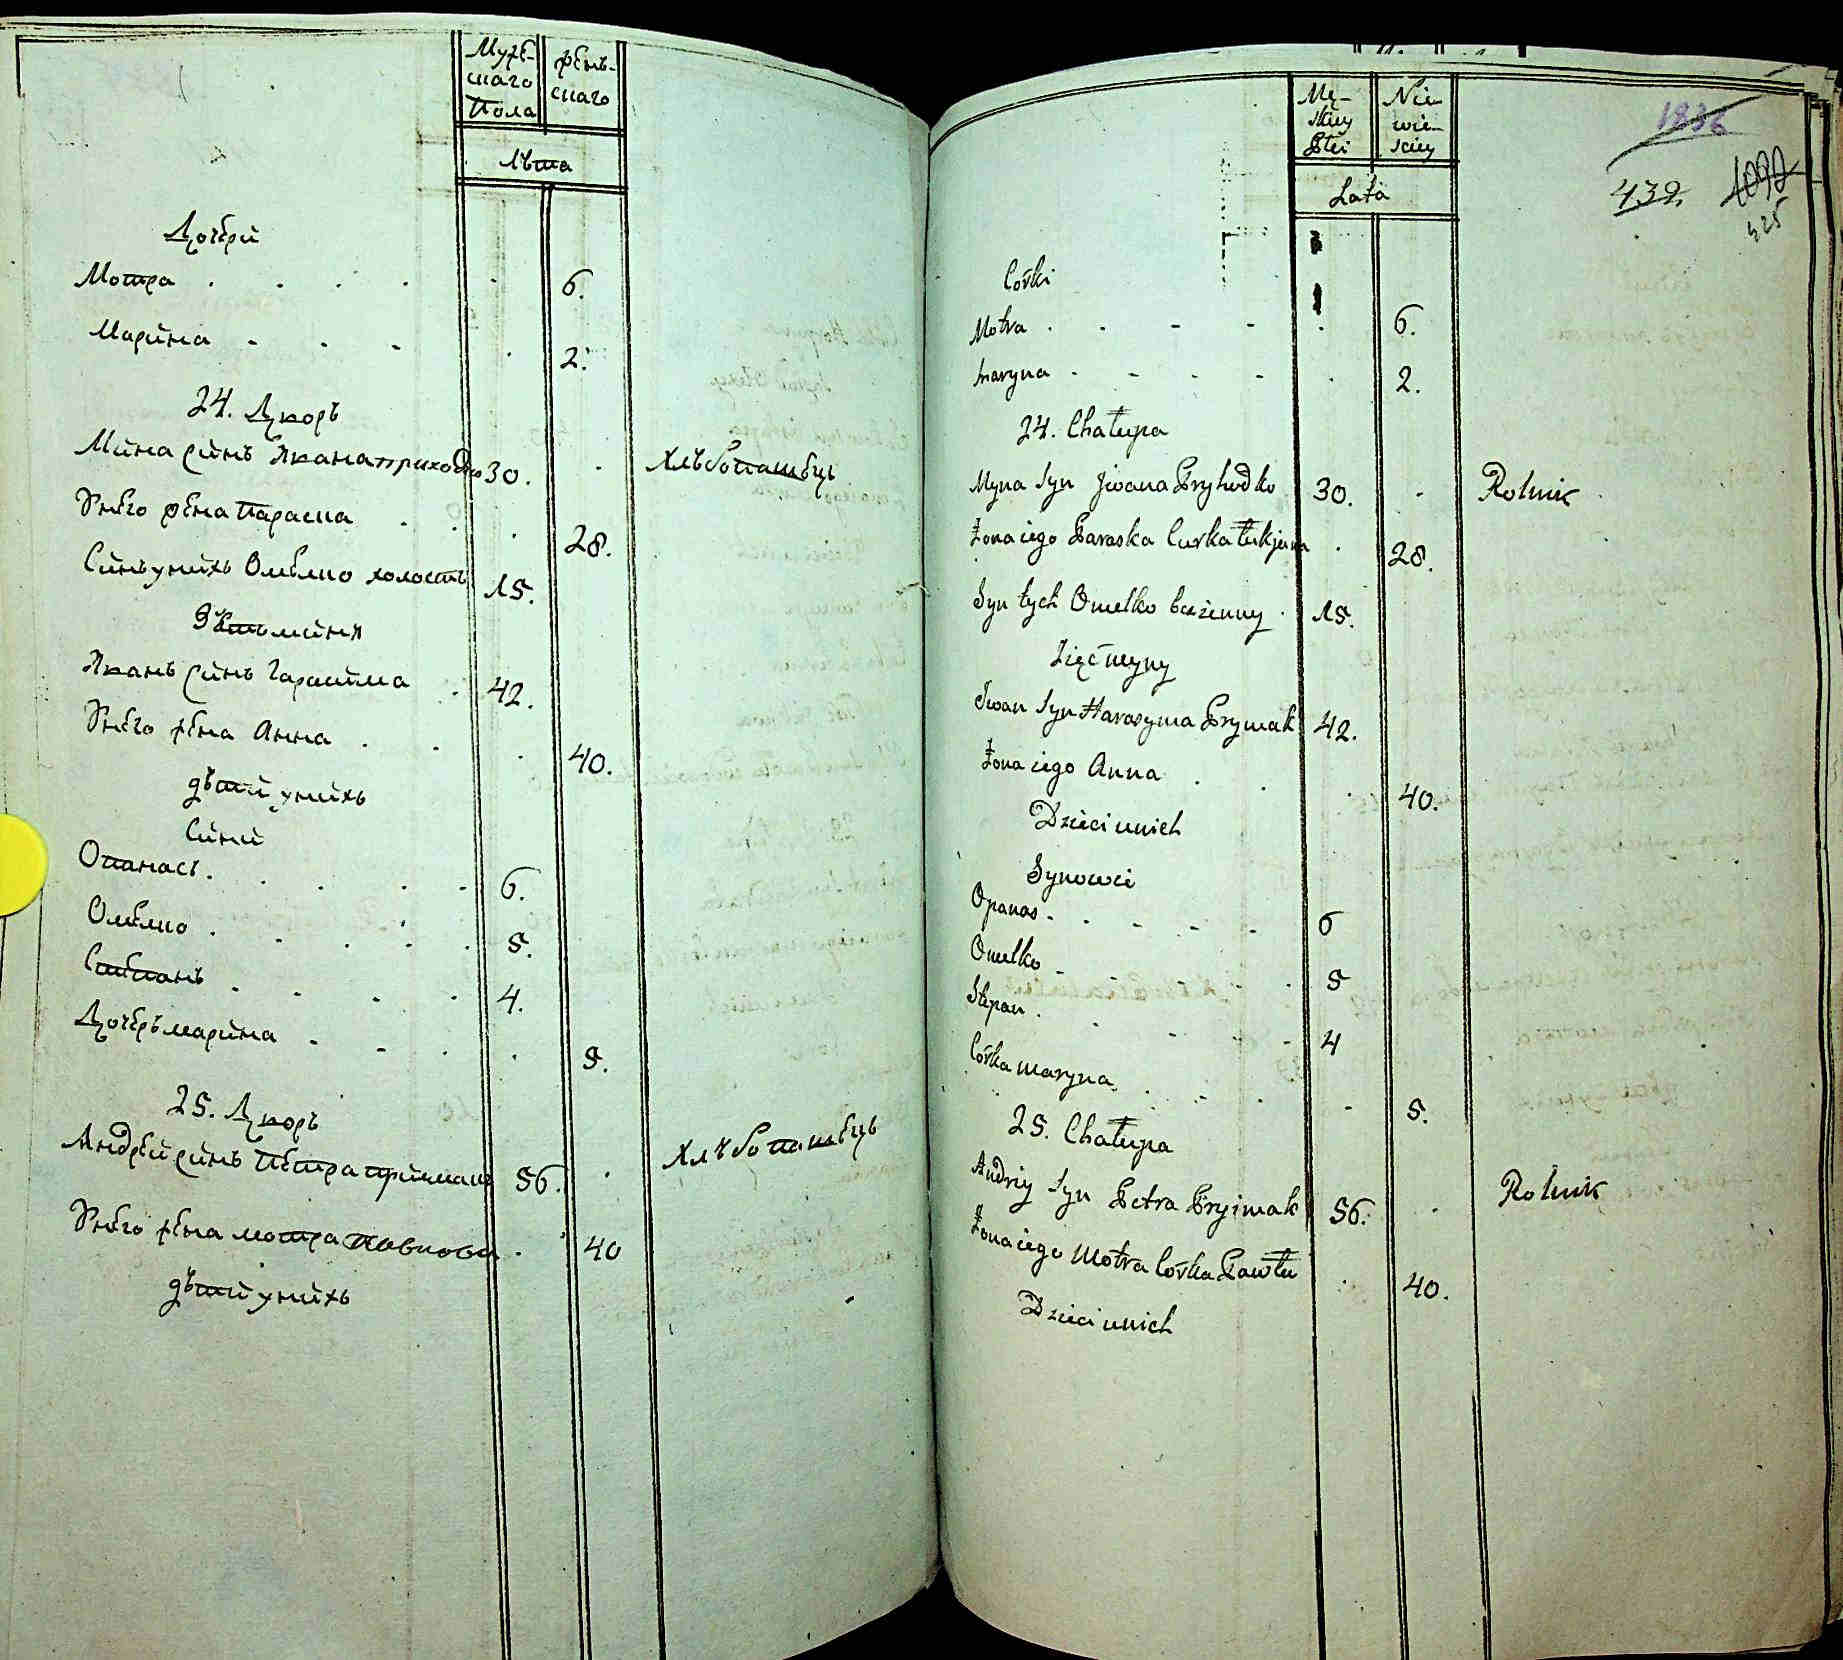 Мужескаго Пола
женьскаго
лѣта
Дочери
Мотра 6.
Марина 2.
24. Дворъ
Мина синъ Ивана приходко 30. Хлѣбопашецъ
Унего жена Параска 28.
Синъ унихъ Омелко холостъ 15.
Зять мини
Иванъ синъ Гарасима 42.
Унего жена Анна 40.
дѣти унихъ
Сини
Опанасъ 6.
Омелко 5.
Степанъ 4.
Дочеръ марина 5.
25. Дворъ
Андрей синъ Петра приймакъ 56. Хлѣбопашецъ
Унего жена мотра Павлова 40
дѣти унихъ
Męskiey Płci
Niewieściey
Lata
1836
439.
1092
425
Córki
Motra 6.
Maryna 2.
24. Chałupa
Myna Syn Jwana Pryhodko 30. Rolnik
Żona iego Paraska Curka Łukjana 28.
Syn tych Omelko beżenny 15.
Zięć myny
Jwan Syn Harasyma Prymak 42.
Żona iego Anna 40.
Dzieci unich
Synowie
Opanas 6
Omelko 5
Stepan 4
Córka maryna 5.
25. Chałupa
Andriy Syn Petra Pryimak 56. Rolnik
Żona iego Motra Córka Pawła 40.
Dzieci unich